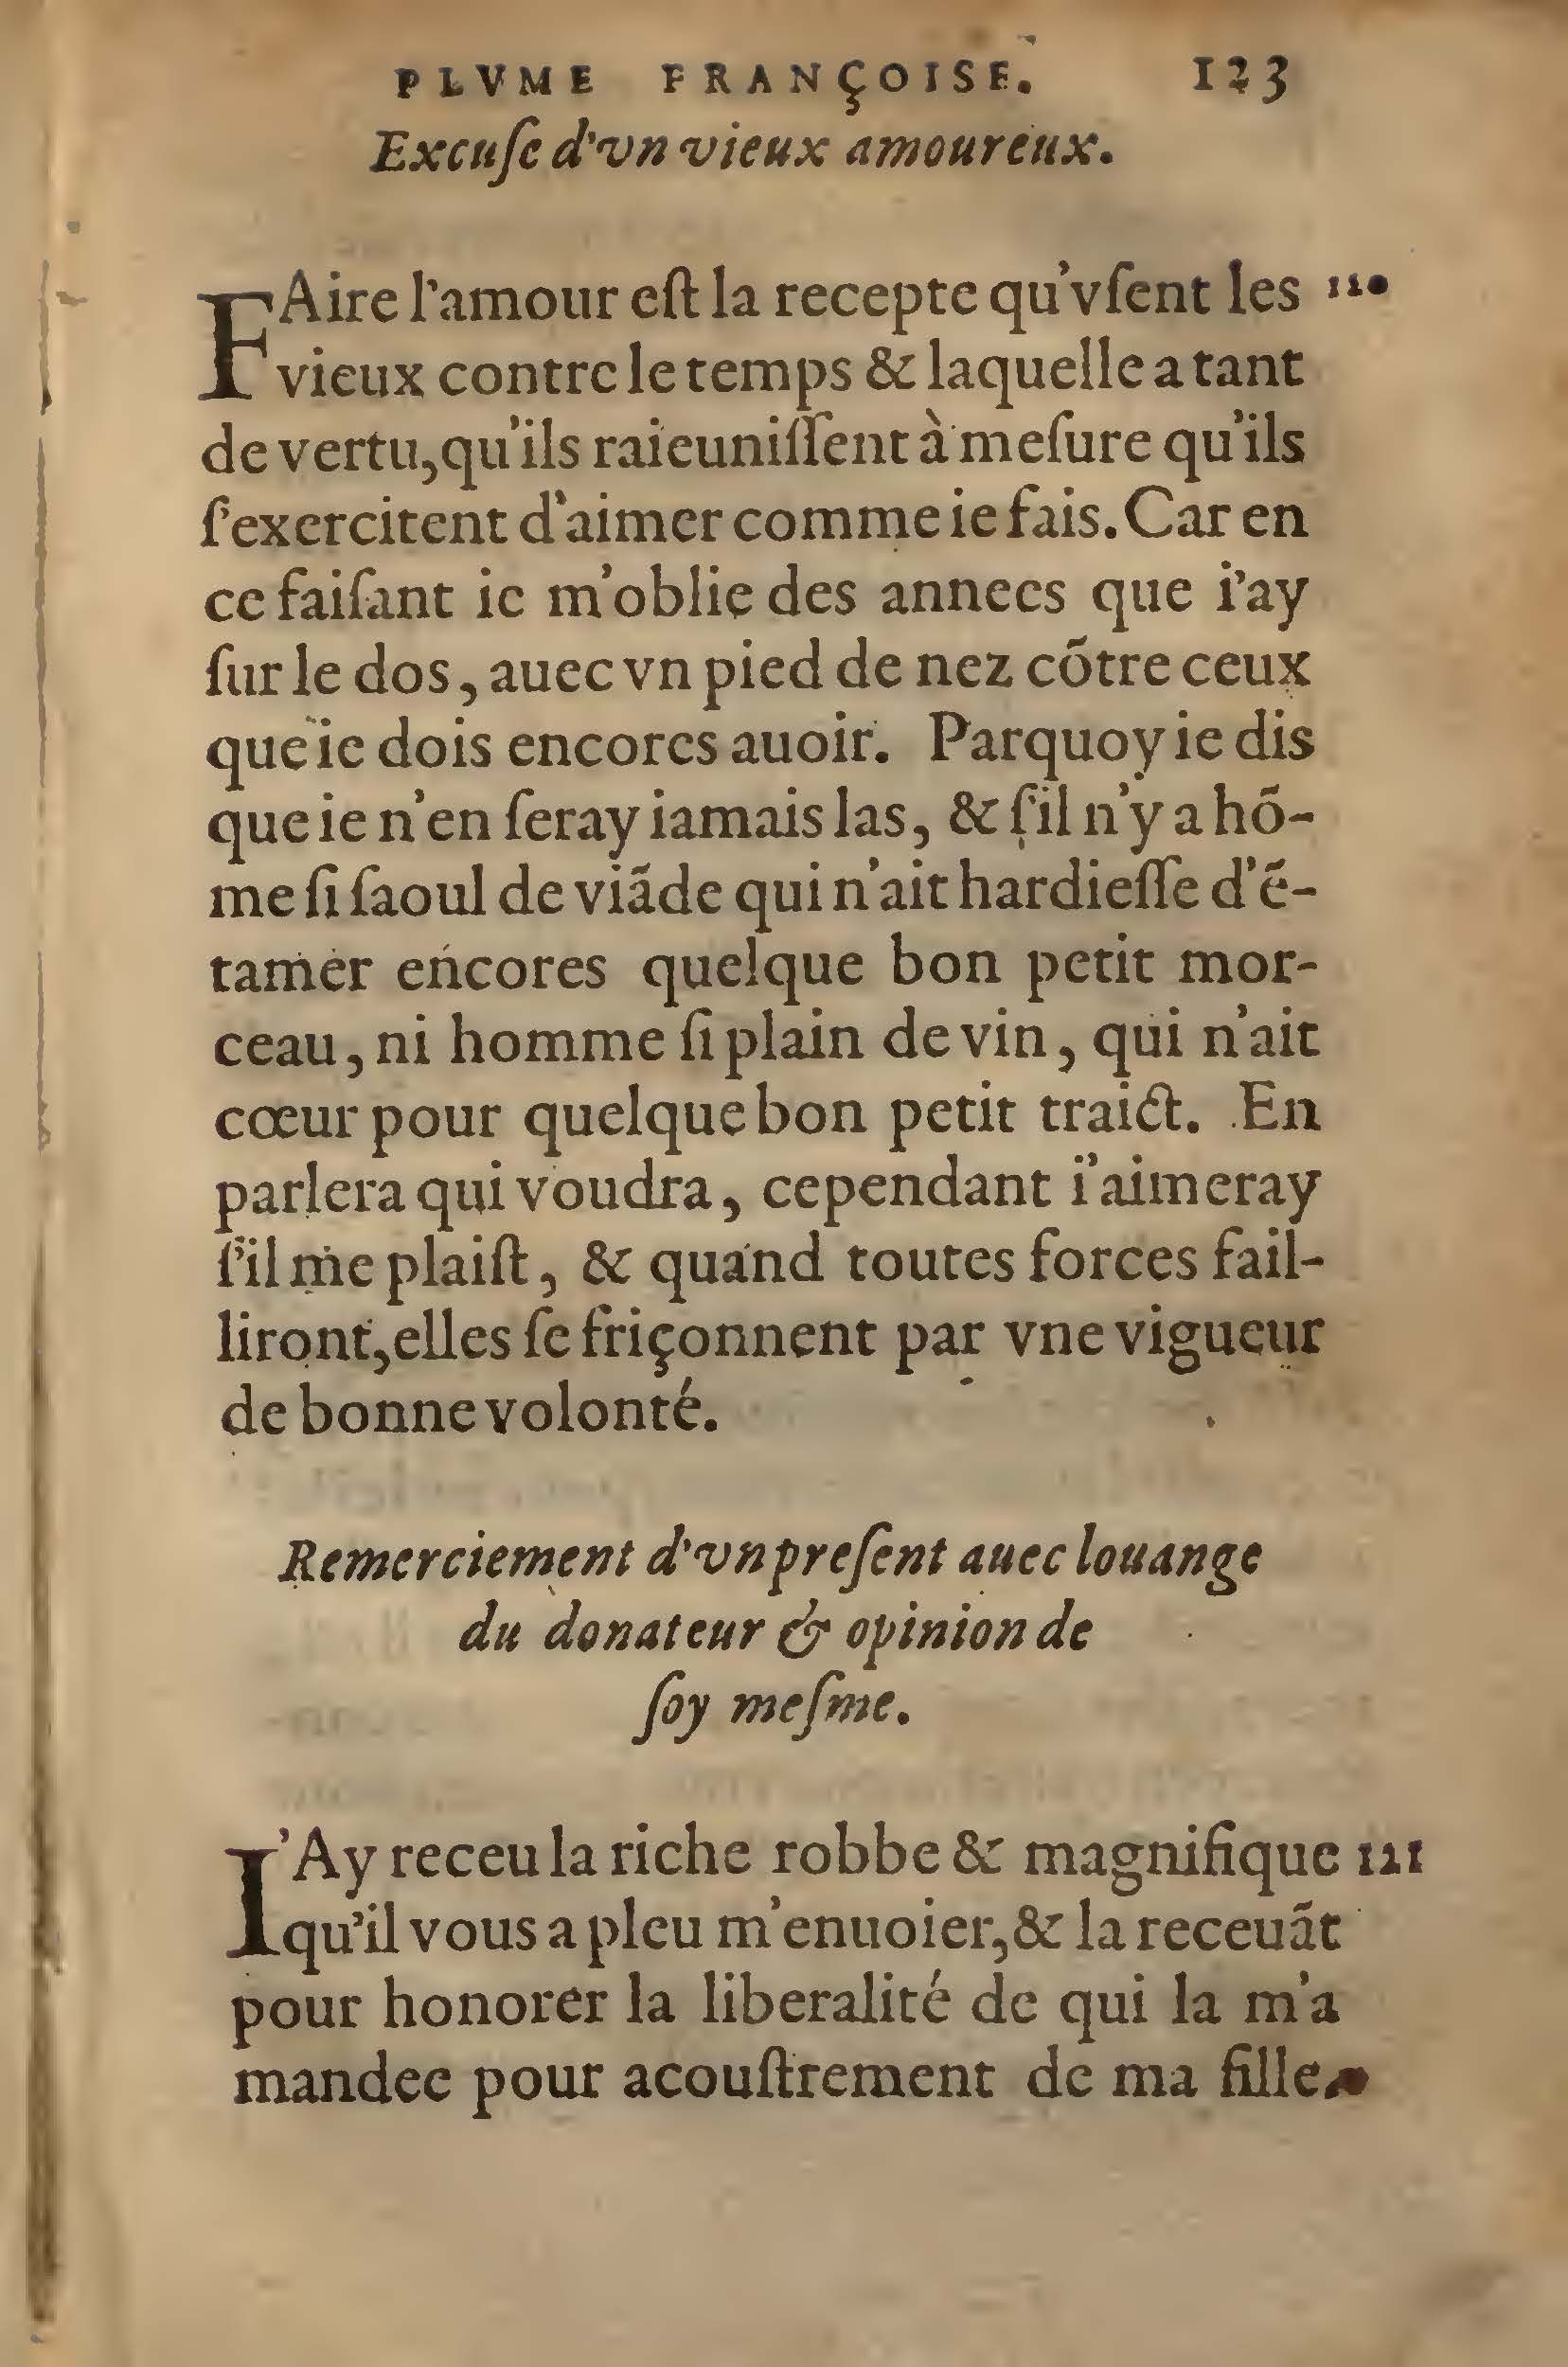 PLVME FRANÇOISE. 123
Excuſe d'vn vieux amoureux.
FAire l'amour eſt la recepte qu'vſent les
vieux contre le temps & laquelle a tant
de vertu, qu'ils raieuniſſent à meſure qu'ils
ſ'exercitent d'aimer comme ie fais. Car en
ce faiſant ie m'oblie des annees que i'ay
ſur le dos, auec vn pied de nez cõtre ceux
que ie dois encores auoir. Parquoy ie dis
que ie n'en ſeray iamais las, & ſ'il n'y a hõ-
me ſi ſaoul de viãde qui n'ait hardieſſe d'ẽ-
tamer encores quelque bon petit mor-
ceau, ni homme ſi plain de vin, qui n'ait
cœur pour quelque bon petit traict. En
parlera qui voudra, cependant i'aimeray
ſ'il me plaiſt, & quand toutes forces fail-
liront, elles ſe friçonnent par vne vigueur
de bonne volonté.
Remerciement d'vn preſent auec louange
du donateur & opinion de
ſoy meſme.
I'Ay receu la riche robbe & magnifique 111
qu'il vous a pleu m'enuoier, & la receuãt
pour honorer la liberalité de qui la m'a
mandee pour acouſtrement de ma fille